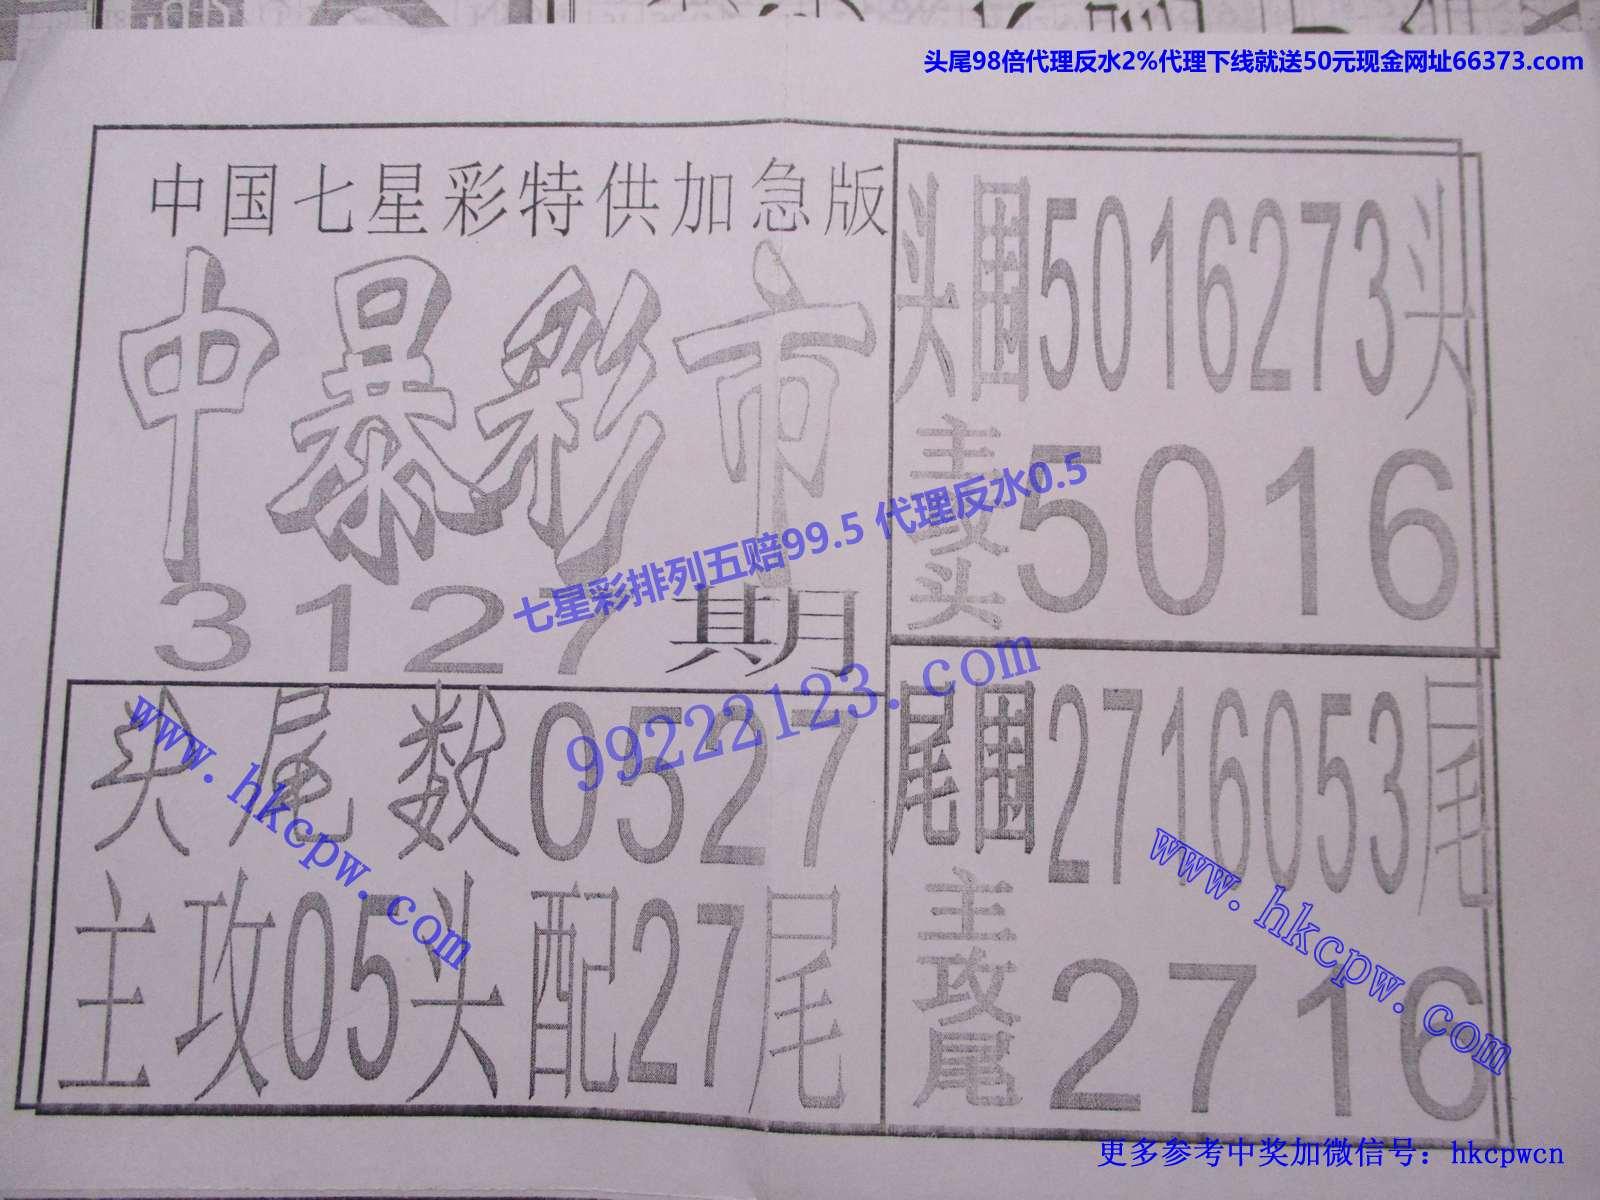 头尾98倍代理反水2%代理下线就送50元现金网址66373.com
中国七星彩特供加急版
中暴彩市
3127期
头尾数0527
主攻05头配27尾
头围5016273头
主攻头5016
尾围2716053尾
主攻尾2716
七星彩排列五赔99.5 代理反水0.5
99222123.com
www.hkcpw.com
www.hkcpw.com
更多参考中奖加微信号：hkcpwcn